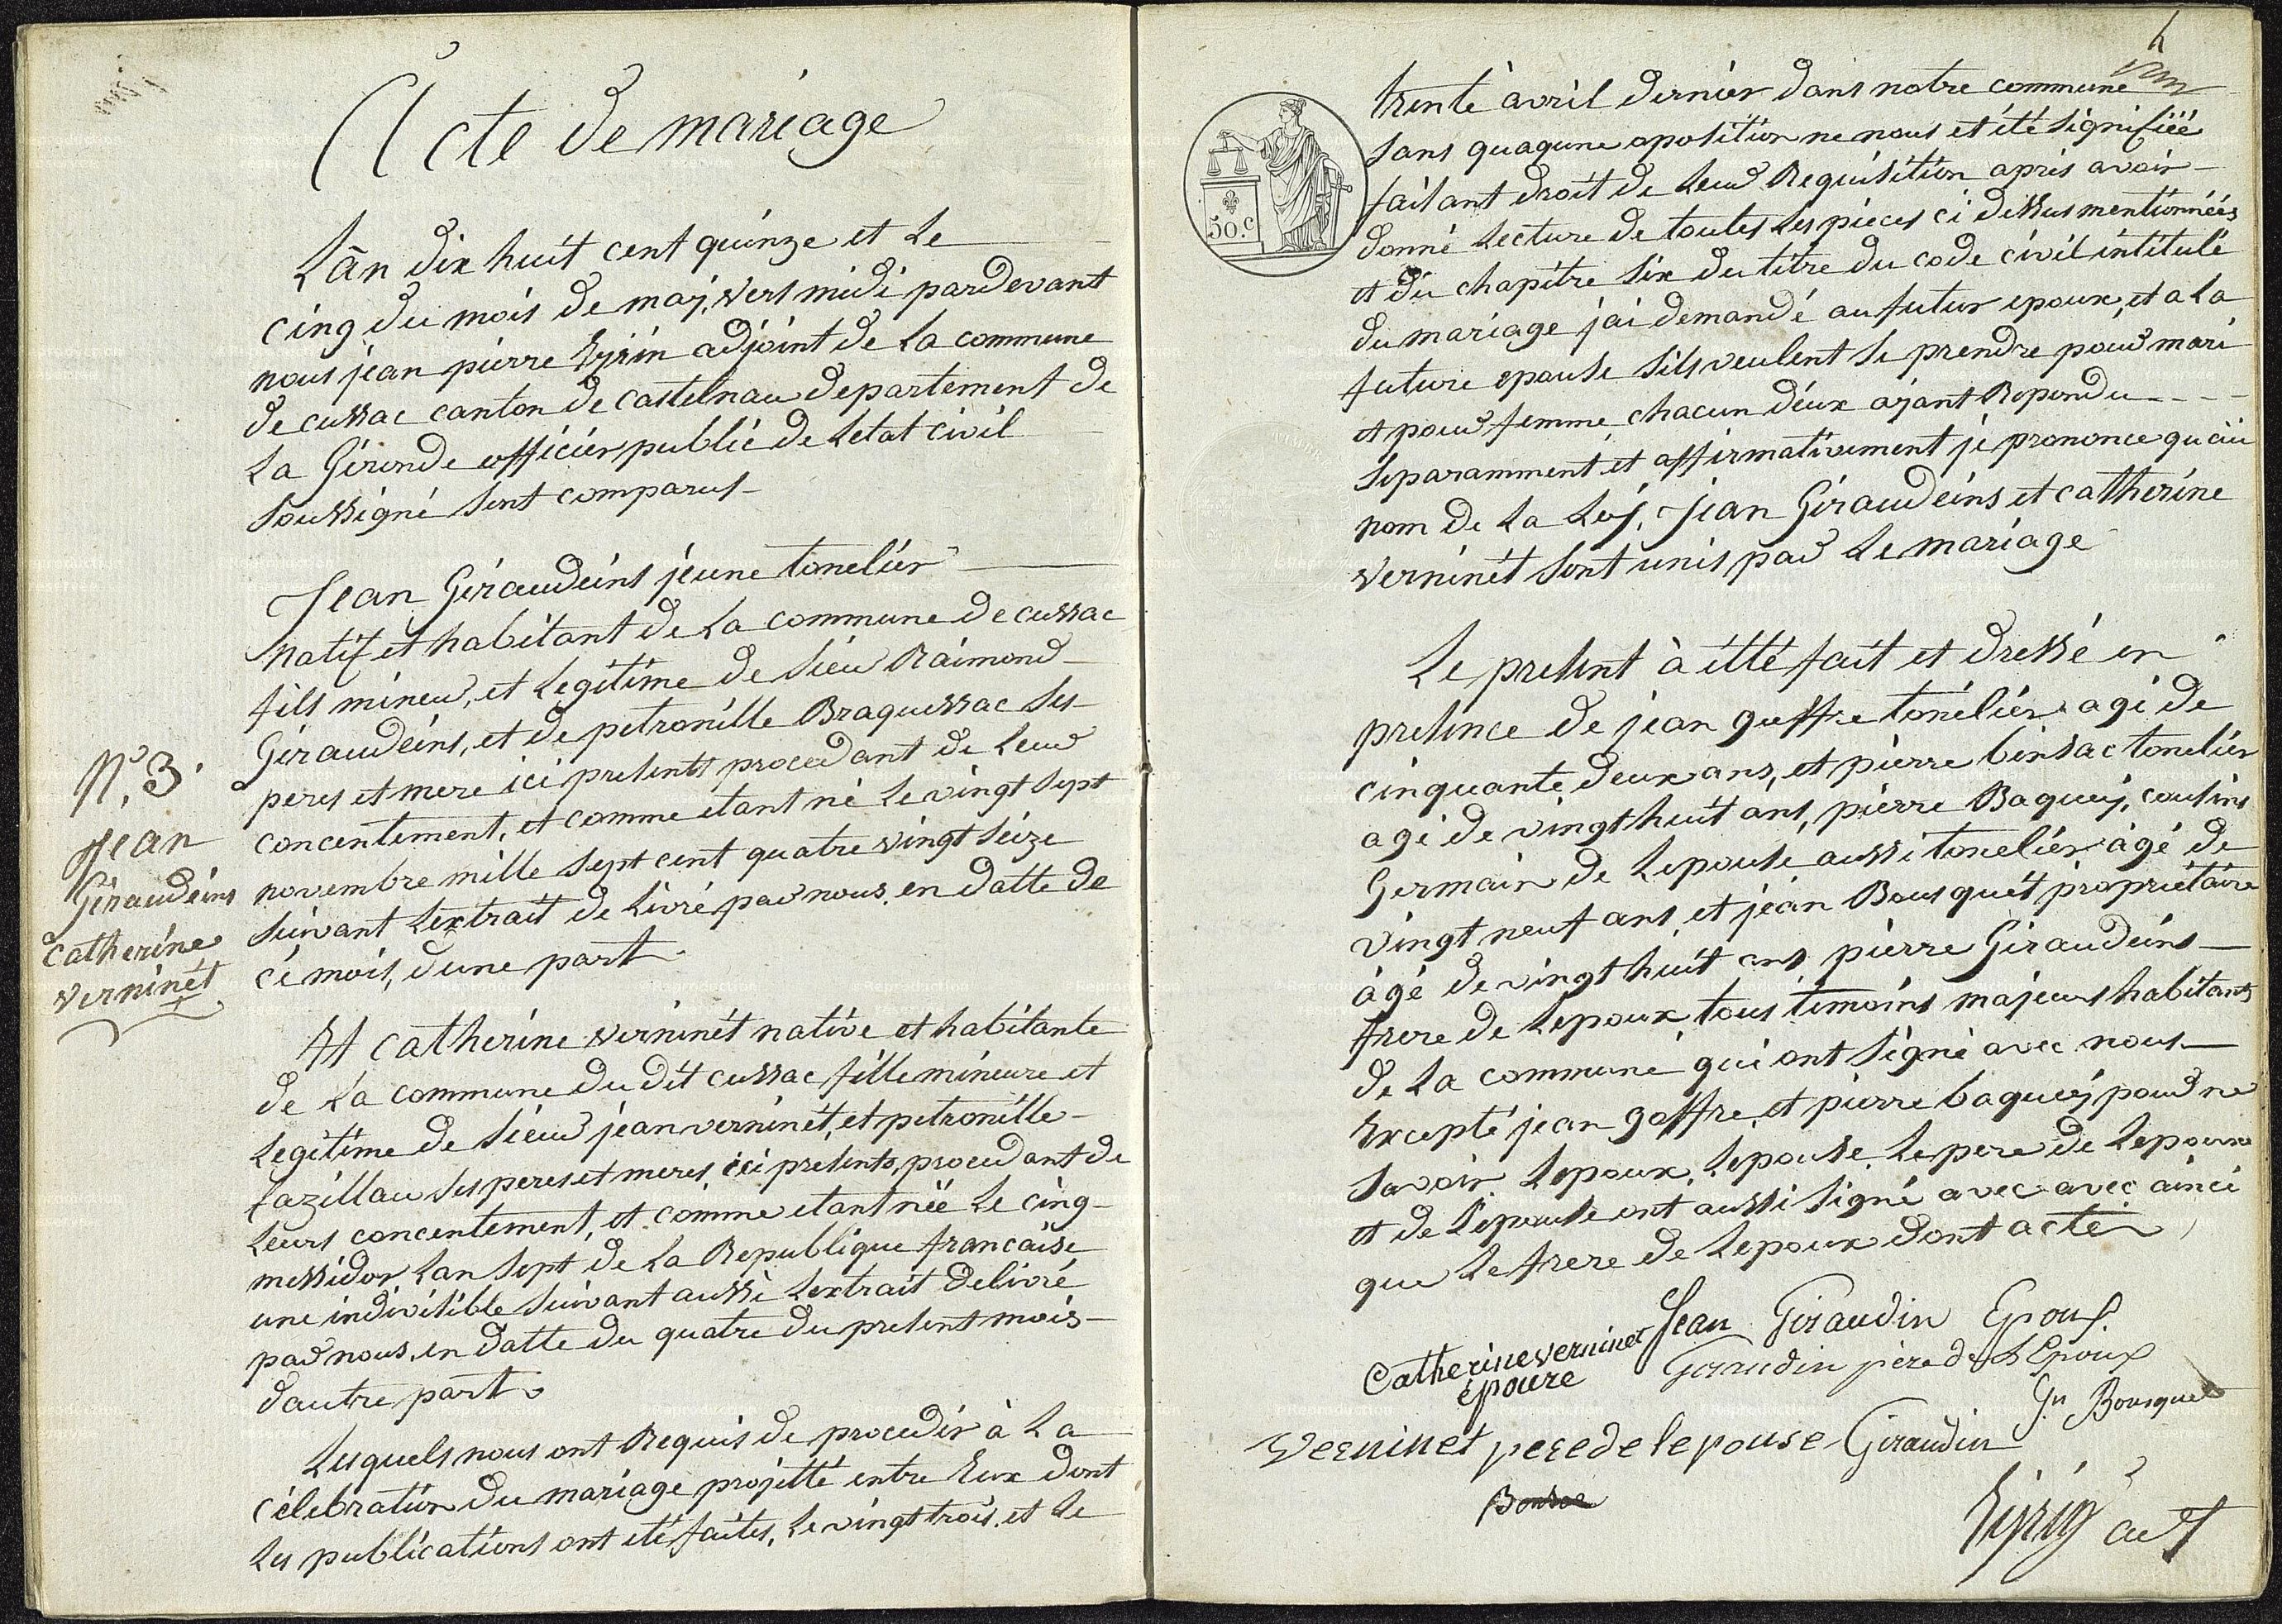 Acte de mariage
L'an dix huit cent quinze et Le
cinq du mois de maj, vers midi pardevant
nous jean pierre Eyrin adjoint de La commune
de cussac canton de castelnau departement de
La Gironde officier public de Letat civil
Soussigné sont comparus
Jean Giraudeins jeune tonelier
natif et habitant de La commune de cussac
fils mineur, et Legitime de sieur Raimond
Giraudeins, et de petronille Braquessac ses
peres et mere ici presents procedant de Leur
concentement, et comme etant né Le vingt sept
novembre mille sept cent quatre vingt seize
suivant Lextrait de Livré par nous en datte de
ce mois, dune part
N.° 3.
Jean
Giraudeins
catherine
verninét
Et catherine verninét native et habitante
de La commune du dit cussac fille mineure et
Legitime de sieur jean verninét, et petronille
Cazillau ses peres et meres, ici presents, procedant de
Leurs concentement, et comme etant née Le cinq
messidor Lan sept de La Republique francaise
une indivisible suivant aussi Lextrait delivré
par nous, en datte du quatre du present mois
dautre part.
Lesquels nous ont Requis de proceder à La
célebration du mariage projetté entre Eux dont
Les publications ont eté faites, Le vingt trois, et Le
trente avril dernier dans notre commune
sans quaqune oposition ne nous et été signifiéé
faisant droit de Leur Requisition aprés avoir
donné Lecture de toutes Les pieces ci dessus mentionnéés
et du chapitre six du titre du code civil intitulé
du mariage jai demandé au futur epoux, et a La
future epouse sils veulent se prendre pour mari
et pour femme chacun deux ajant Repondu
separamment et affirmativement je prononce quau
nom de La Loj, Jean Giraudeins et catherine
verninét sont unis par Le mariage
50.c
Le present à étté fait et dressé en
presence de jean goffre tonélier agé de
cinquante deux ans, et pierre binsac tonelier
agé de vingt huit ans, pierre Baquej, cousins
Germain de Lepouse aussi tonelier àgé de
vingt neuf ans, et jean Bousquét propriétaire
àgé de vingt huit ans pierre Giraudeins
frere de Lepoux tous temoins majeurs habitants
de La commune qui ont signé avec nous
Excepté jean goffre, et pierre baquej pour ne
savoir Lepoux, Lepouse, Le pere de Lepoux
et de Lepouse ont aussi signé avec avec ainci
que Le frere de Lepoux dont acte
Jean Giraudin Epoux
Catherine verninet
épouze
Giraudin père de L'Epoux
Jn Bousquet
Verninet perede lepouse Giraudin
Eyrin adt